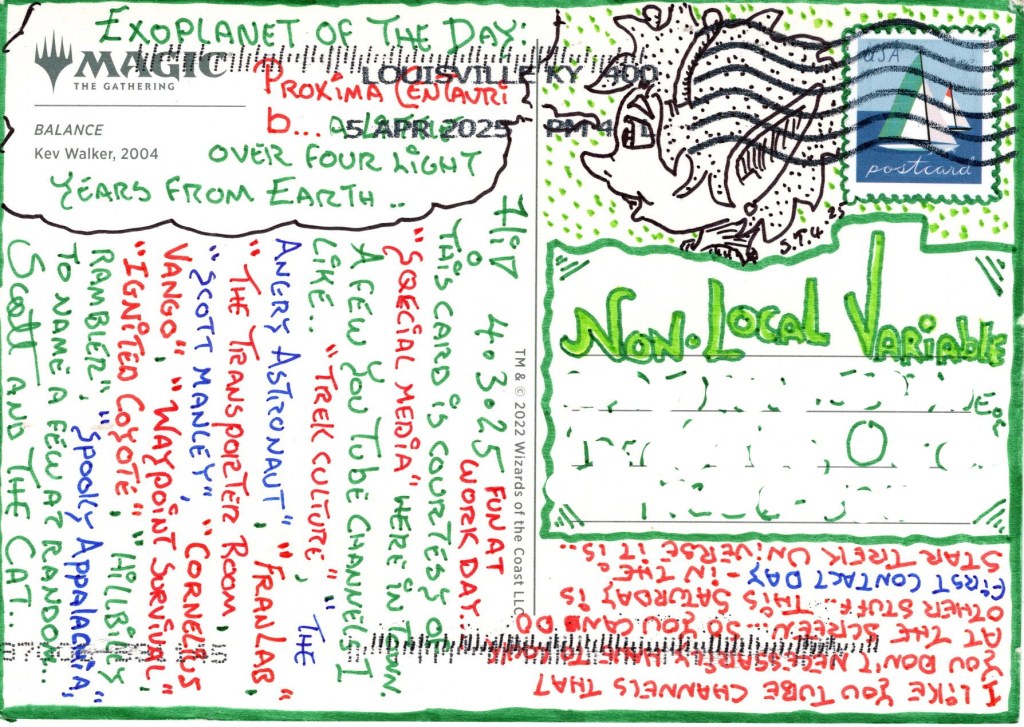 EXOPLANET OF THE DAY:
MAGIC
THE GATHERING
LOUISVILLE KY 400
PROXIMA CENTAURI
b...
5 APR 2025 PM 4 L
BALANCE
Kev Walker, 2004
OVER FOUR LIGHT
YEARS FROM EARTH..
USA
postcard
S.T.4. 25
4.3.25 FUN AT
WORK DAY:
THIS CARD IS COURTESY OF
"SQECIAL MEDIA" HERE IN TOWN.
A FEW YOU TUBE CHANNELS I
LIKE.. "TREK CULTURE", "THE
ANGRY ASTRONAUT", "FRAN LAB",
"THE TRANSPORTER ROOM,
"SCOTT MANLEY", "CORNELIUS
VANGO", "WAYPOINT SURVIVAL",
"IGNITED COYOTE", "HILLBILLY
RAMBLER", "SPOOKY APPALACHIA",
TO NAME A FEW AT RANDOM..
SCOTT AND THE CAT..
TM & © 2022 Wizards of the Coast LLC
NON-LOCAL VARIABLE
I LIKE YOU TUBE CHANNELS THAT
YOU DON'T NECESSARILY HAVE TO LOOK
AT THE SCREEN... SO YOU CAN DO
OTHER STUFF... THIS SATURDAY IS
FIRST CONTACT DAY - IN THE
STAR TREK UNIVERSE IT IS..